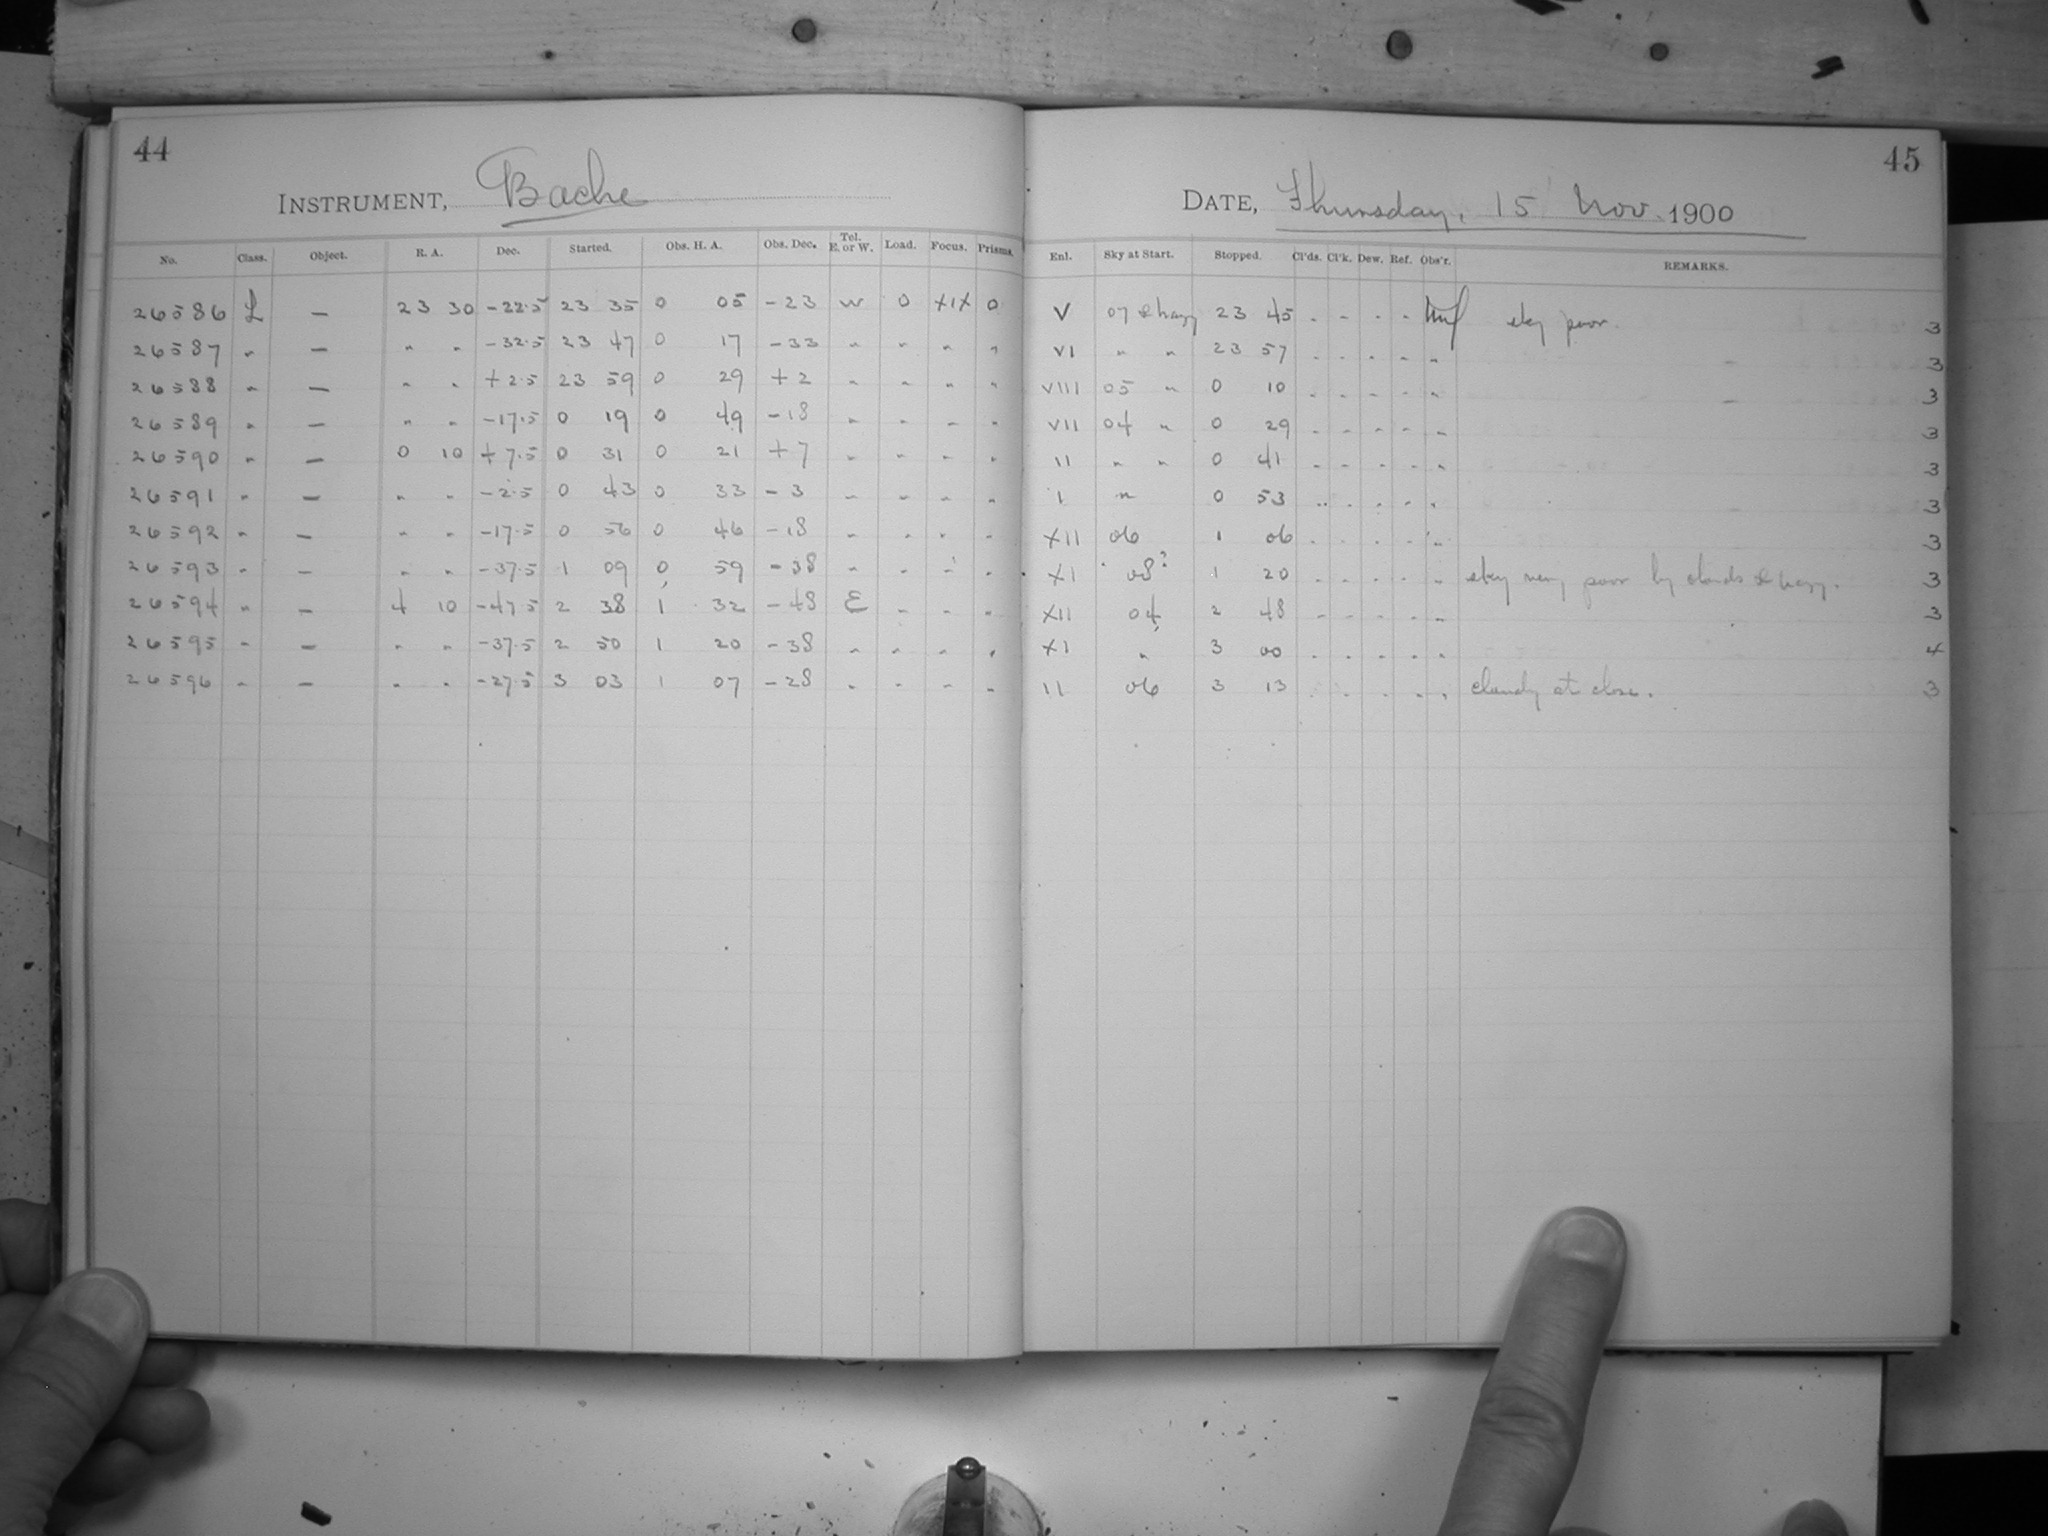 44
INSTRUMENT, Bache
No. Class. Object. R. A. Dec. Started. Obs. H. A. Obs. Dec. Tel. E. or W. Load. Focus. Prisms.
26586 L — 23 30 -22.5 23 35 0 05 -23 W 0 XIX 0
26587 " — " " -32.5 23 47 0 17 -33 " " " "
26588 " — " " +2.5 23 59 0 29 +2 " " " "
26589 " — " " -17.5 0 19 0 49 -18 " " " "
26590 " — 0 10 +7.5 0 31 0 21 +7 " " " "
26591 " — " " -2.5 0 43 0 33 -3 " " " "
26592 " — " " -17.5 0 56 0 46 -18 " " " "
26593 " — " " -37.5 1 09 0 59 -38 " " " "
26594 " — 4 10 -47.5 2 38 1 32 -48 E " " "
26595 " — " " -37.5 2 50 1 20 -38 " " " "
26596 " — " " -27.5 3 03 1 07 -28 " " " "
45
DATE, Thursday, 15 Nov. 1900
Enl. Sky at Start. Stopped. Cl'ds. Cl'k. Dew. Ref. Obs'r. REMARKS.
V 07 & hazy 23 45 - - - - sky poor. 3
VI " " 23 57 - - - - " 3
VIII 05 " 0 10 - - - - " 3
VII 04 " 0 29 - - - - " 3
II " " 0 41 - - - - " 3
I " 0 53 - - - - " 3
XII 06 1 06 - - - - " 3
XI 08? 1 20 - - - - " sky very poor by clouds & hazy. 3
XII 04 2 48 - - - - " 3
XI " 3 00 - - - - " 4
II 06 3 13 - - - - " cloudy at close. 3